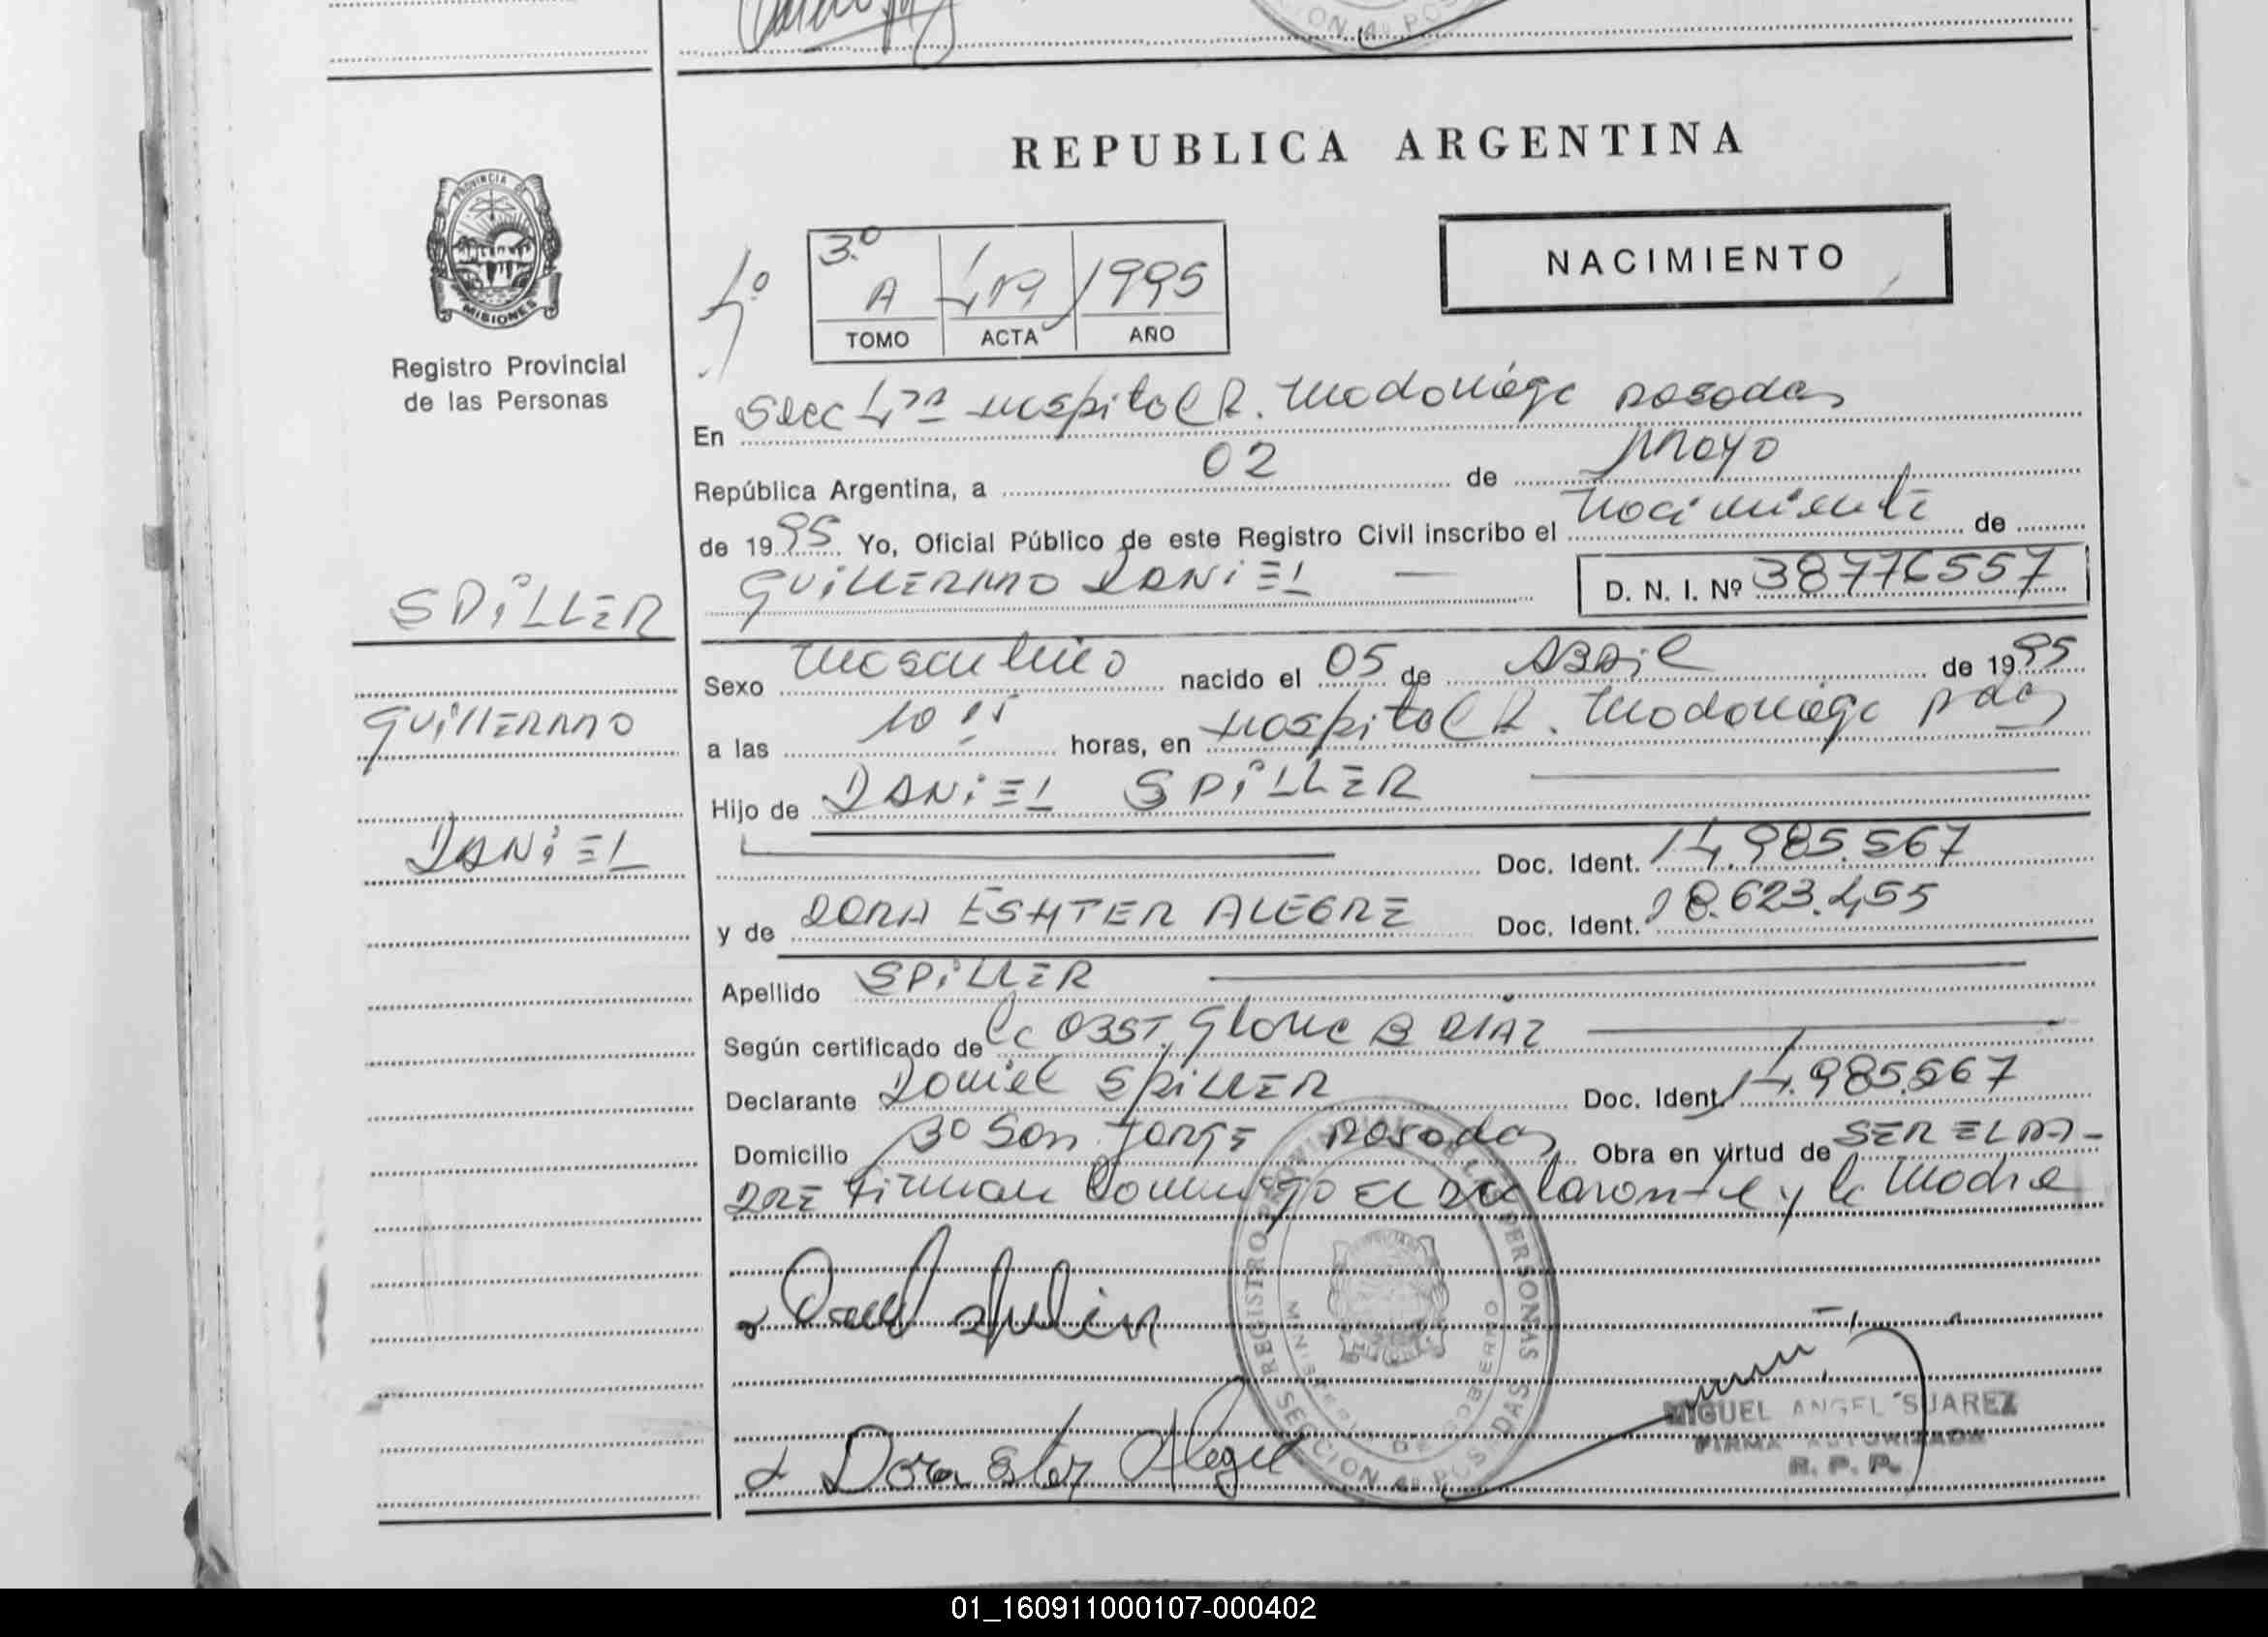 REPUBLICA ARGENTINA
PROVINCIA DE
MISIONES
Registro Provincial
de las Personas
4º
3.º
A 419 1995
TOMO ACTA AÑO
NACIMIENTO
En Secc 4ta Hospital R. Madariaga Posadas
República Argentina, a 02 de Mayo
de 1995 Yo, Oficial Público de este Registro Civil inscribo el nacimiento de
GUILLERMO DANIEL D. N. I. Nº 38776557
SPILLER
GUILLERMO
DANIEL
Sexo masculino nacido el 05 de ABRIL de 1995
a las 10 15 horas, en Hospital R. Madariaga Pdas
Hijo de DANIEL SPILLER
Doc. Ident. 14.985.567
y de DORA ESHTER ALEGRE Doc. Ident. 18.623.455
Apellido SPILLER
Según certificado de la OBST. Gloria B DIAZ
Declarante Daniel SPILLER Doc. Ident. 14.985.567
Domicilio Bº San JORGE Posadas Obra en virtud de SER EL PA-
DRE Firman conmigo EL Declarante y la Madre
REGISTRO PROVINCIAL DE LAS PERSONAS
MINISTERIO DE GOBIERNO
SECCION 4a POSADAS
Dora Ester Alegre
MIGUEL ANGEL SUAREZ
FIRMA AUTORIZADA
R. P. P.
01_160911000107-000402